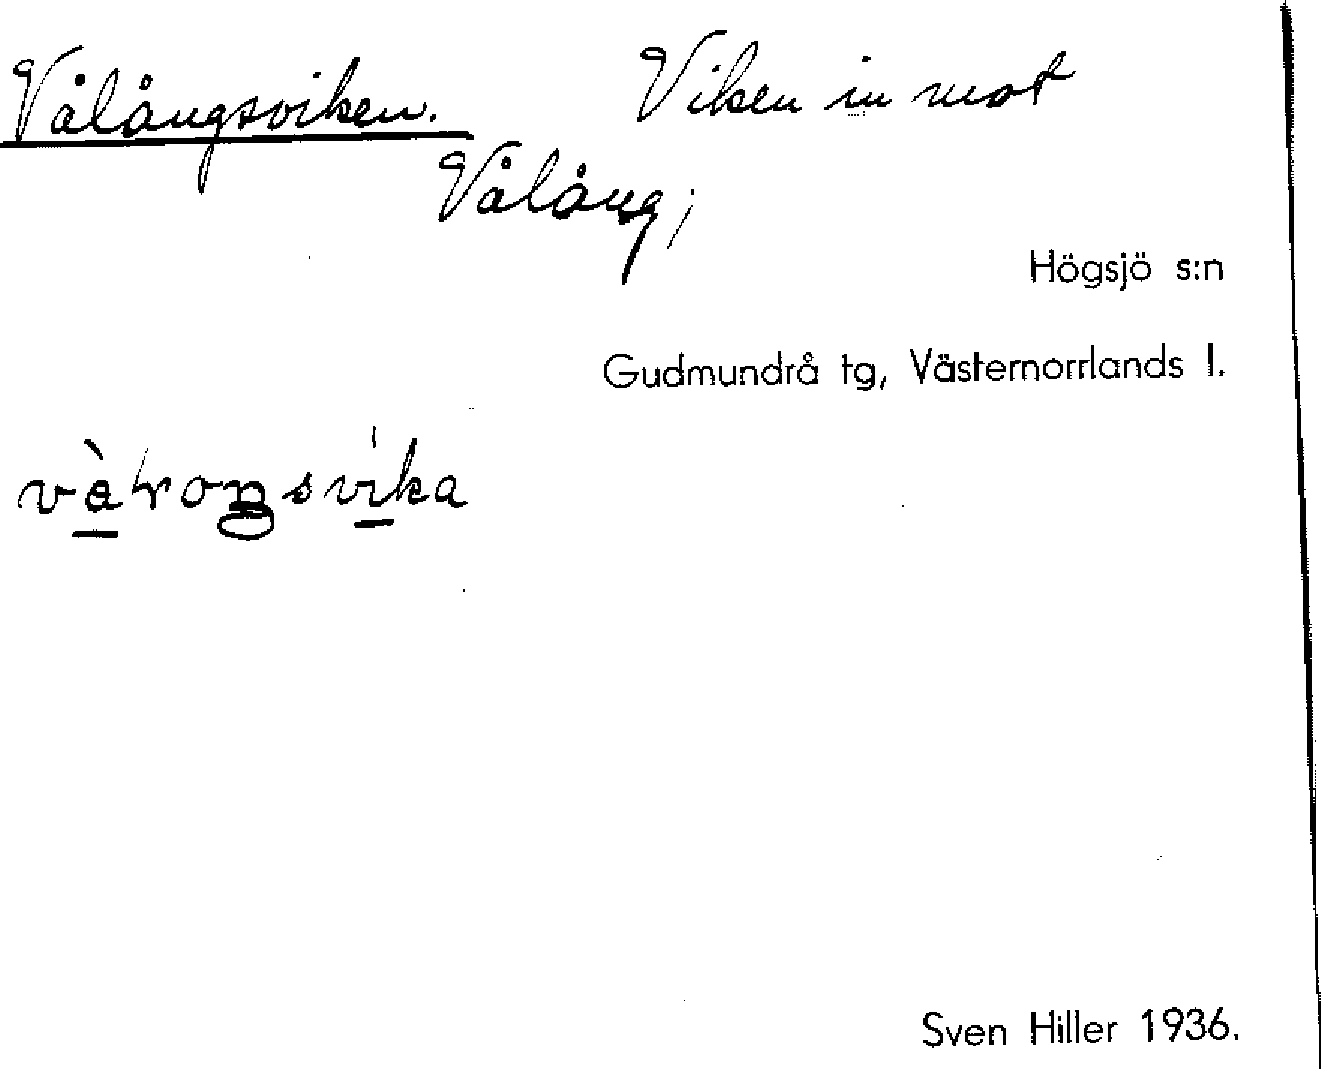 Vålångsviken. Viken in mot
Vålång;
Högsjö s:n
Gudmundrå tg, Västernorrlands l.
Sven Hiller 1936.